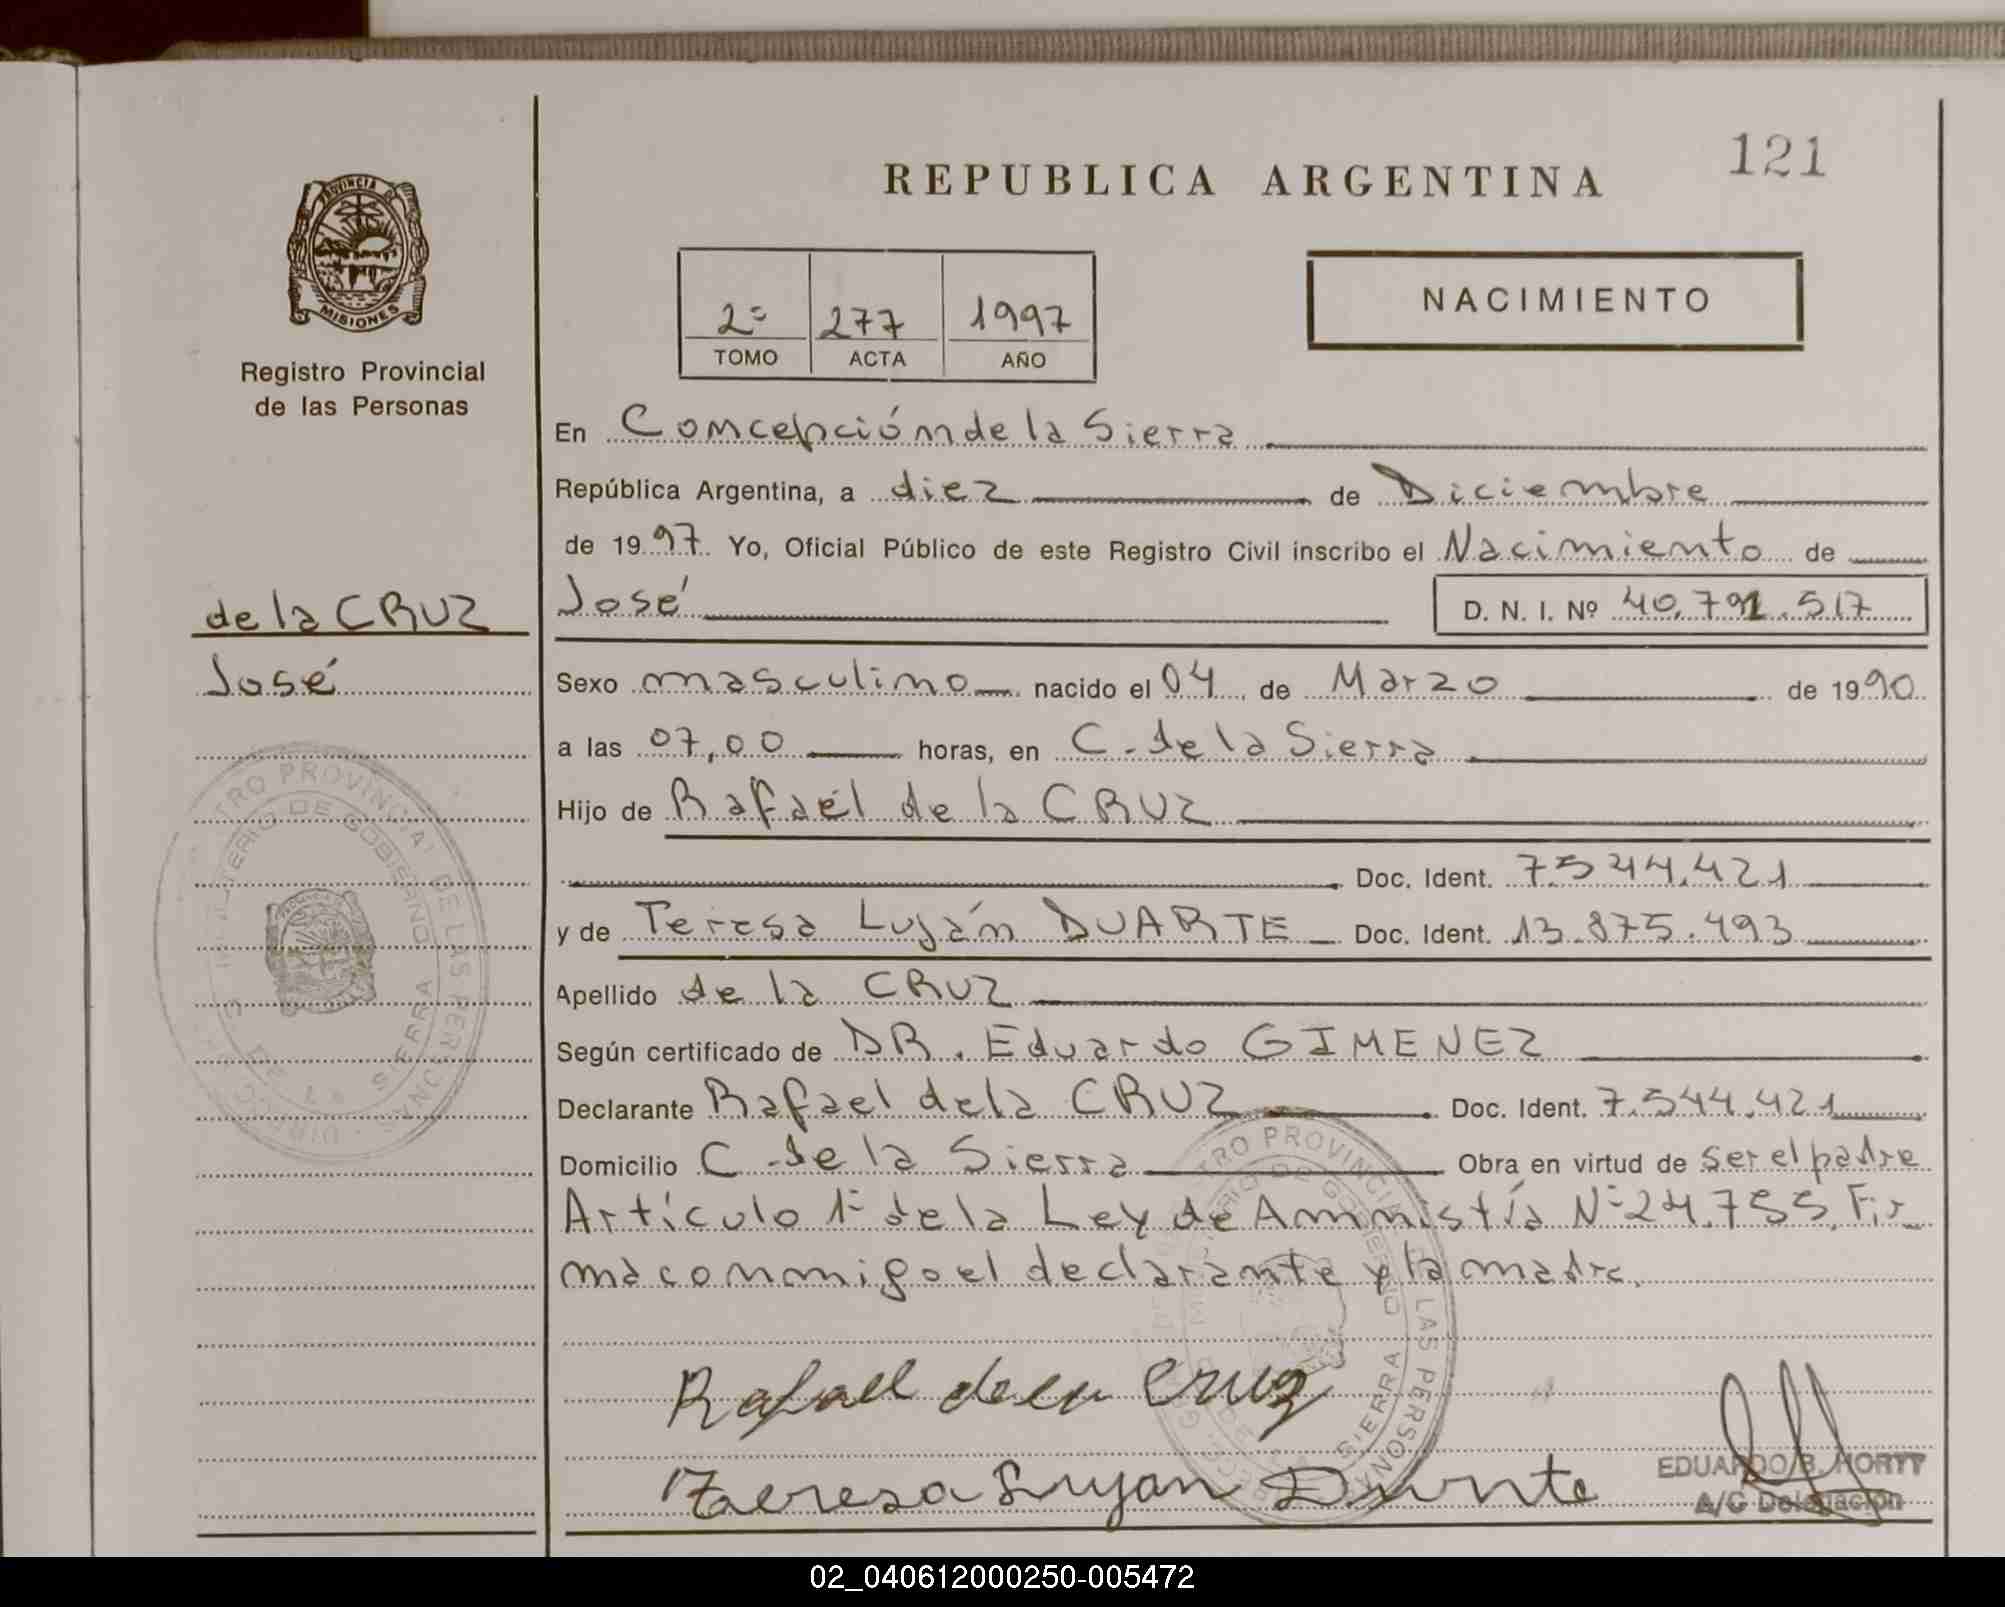 121
REPUBLICA ARGENTINA
PROVINCIA DE
MISIONES
Registro Provincial
de las Personas
2º 277 1997
TOMO ACTA AÑO
NACIMIENTO
En Concepción de la Sierra
República Argentina, a diez de Diciembre
de 1997 Yo, Oficial Público de este Registro Civil inscribo el Nacimiento de
de la CRUZ
José
José D. N. I. Nº 40.791.517
Sexo masculino nacido el 04 de Marzo de 1990
a las 07,00 horas, en C. de la Sierra
Hijo de Rafaél de la CRUZ
Doc. Ident. 7.544.421
y de Teresa Luján DUARTE Doc. Ident. 13.875.493
Apellido de la CRUZ
Según certificado de DR. Eduardo GIMENEZ
Declarante Rafael de la CRUZ Doc. Ident. 7.544.421
Domicilio C. de la Sierra Obra en virtud de ser el padre
Artículo 1º de la Ley de Amnistía Nº 24.755. Fir
ma conmigo el declarante y la madre.
Rafael de la Cruz
Teresa Lujan Duarte
EDUARDO B. HORYT
A/C Delegación
TRO PROVINCIAL DE LAS PERSONAS
MINISTERIO DE GOBIERNO
SIERRA
TRO PROVINCIAL DE LAS PERSONAS
MINISTERIO DE GOBIERNO
SIERRA
02_040612000250-005472